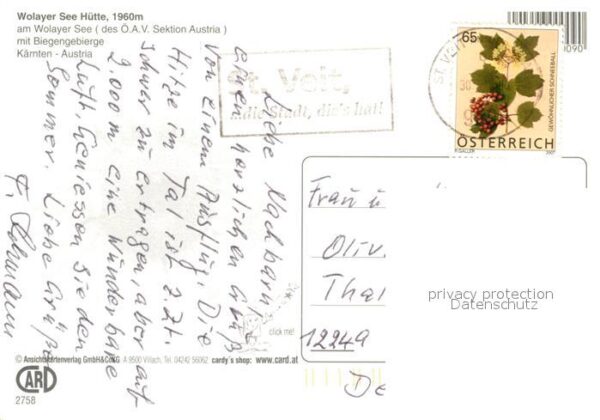 Wolayer See Hütte, 1960m
am Wolayer See ( des Ö.A.V. Sektion Austria )
mit Biegengebierge
Kärnten - Austria
Liebe Nachbarn!
einen herzlichen Gruß
von einem Ausflug. Die
Hitze im Tal ist z.Zt.
schwer zu ertragen, aber auf
2.000 m eine wunderbare
Luft. Geniessen Sie den
Sommer. Liebe Grüße
F.
St. Veit,
die Stadt, die's hat!
ST. VEIT
65
GEWÖHNLICHER SCHNEEBALL
ÖSTERREICH
2007
090
Frau u
Oliv
Thal
12249
De
privacy protection
Datenschutz
click me!
© Ansichtskartenverlag GmbH&CoKG A 9500 Villach, Tel. 04242 56062 cardy's shop: www.card.at
CARD
2758